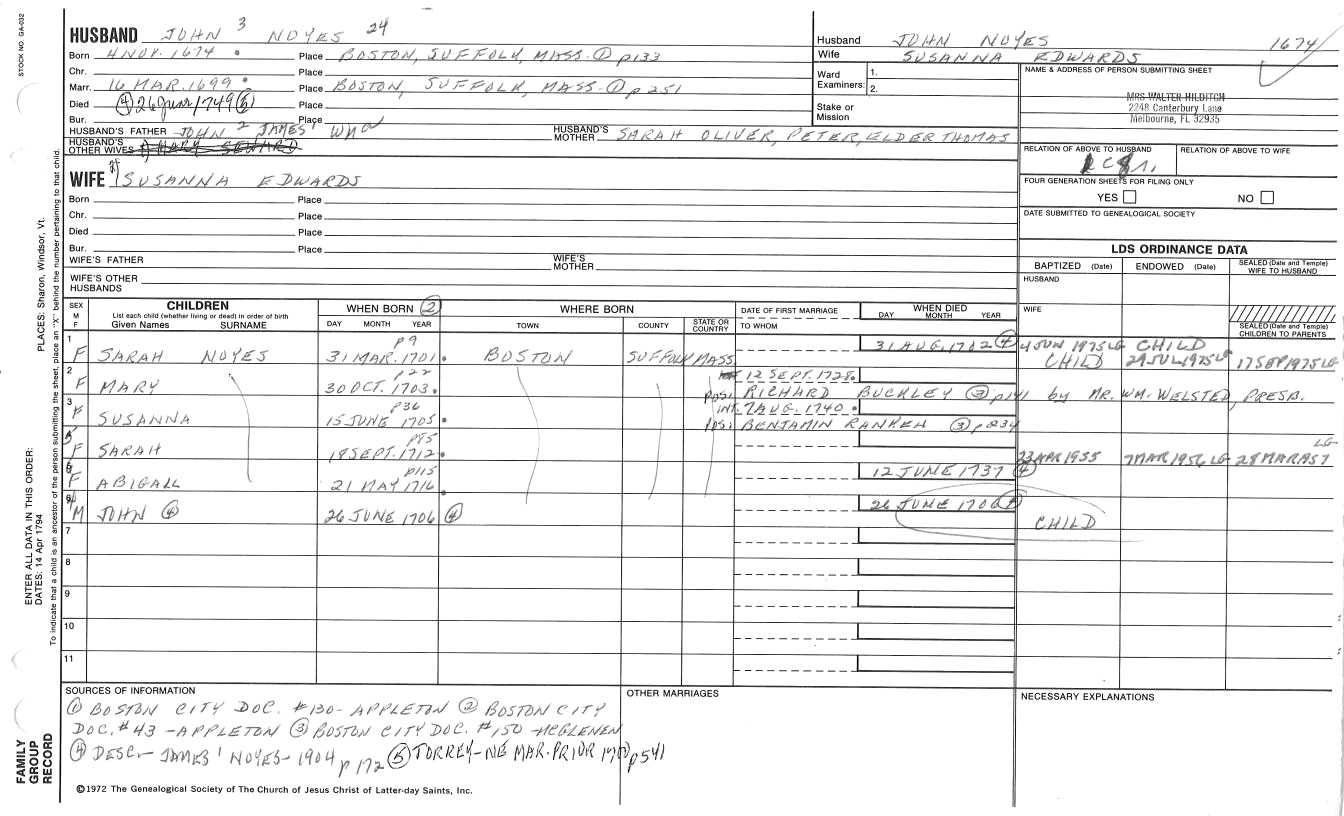 STOCK NO. GA-032
HUSBAND JOHN 3 NOYES 24
Born 4 NOV. 1674 Place BOSTON, SUFFOLK, MASS. ① p133
Chr. Place
Marr. 16 MAR. 1699 Place BOSTON, SUFFOLK, MASS. ① p 251
Died ④ 26 June 1749 ⑤ Place
Bur. Place
HUSBAND'S FATHER JOHN 2 JAMES 1 Wm HUSBAND'S MOTHER SARAH OLIVER, PETER, ELDER THOMAS
HUSBAND'S OTHER WIVES 1) MARY SEWARD
WIFE 2) SUSANNA EDWARDS
Born Place
Chr. Place
Died Place
Bur. Place
WIFE'S FATHER WIFE'S MOTHER
WIFE'S OTHER HUSBANDS
Husband JOHN NOYES 1674
Wife SUSANNA EDWARDS
Ward Examiners: 1.
2.
Stake or Mission
NAME & ADDRESS OF PERSON SUBMITTING SHEET
MRS WALTER HILDITCH
2248 Canterbury Lane
Melbourne, FL 32935
RELATION OF ABOVE TO HUSBAND RELATION OF ABOVE TO WIFE
FOUR GENERATION SHEETS FOR FILING ONLY
YES NO
DATE SUBMITTED TO GENEALOGICAL SOCIETY
LDS ORDINANCE DATA
BAPTIZED (Date) ENDOWED (Date) SEALED (Date and Temple) WIFE TO HUSBAND
HUSBAND
WIFE
SEALED (Date and Temple) CHILDREN TO PARENTS
SEX M F
CHILDREN
List each child (whether living or dead) in order of birth
Given Names SURNAME
WHEN BORN ②
DAY MONTH YEAR
WHERE BORN
TOWN COUNTY STATE OR COUNTRY
DATE OF FIRST MARRIAGE
TO WHOM
WHEN DIED
DAY MONTH YEAR
1 F SARAH NOYES p9 31 MAR. 1701 BOSTON SUFFOLK MASS 31 AUG. 1702 ④ 4 JUN 1975 LG CHILD
CHILD 29 JUL 1975 LG 17 SEP 1975 LG
2 F MARY p22 30 OCT. 1703 12 SEPT. 1728
RICHARD BUCKLEY ③ p141 by MR. WM. WELSTED, PRESB.
3 F SUSANNA p36 15 JUNE 1705 INT. 7 AUG. 1740
BENJAMIN RANKEN ③ p234
F SARAH p85 18 SEPT. 1712 23 APR 1955 7 MAR 1956 LG 28 MAR 1957 LG
F ABIGALL p115 21 MAY 1716 12 JUNE 1737 ④
M JOHN ④ 26 JUNE 1706 ④ 26 JUNE 1706 ④ CHILD
7
8
9
10
11
SOURCES OF INFORMATION
① BOSTON CITY DOC. #130 - APPLETON ② BOSTON CITY
DOC. #43 - APPLETON ③ BOSTON CITY DOC. #150 - MCGLENEN
④ DESC. - JAMES 1 NOYES - 1904 p 172 ⑤ TORREY - NE MAR. PRIOR 1700 p541
OTHER MARRIAGES
NECESSARY EXPLANATIONS
©1972 The Genealogical Society of The Church of Jesus Christ of Latter-day Saints, Inc.
FAMILY GROUP RECORD
ENTER ALL DATA IN THIS ORDER:
DATES: 14 Apr 1794
PLACES: Sharon, Windsor, Vt.
To indicate that a child is an ancestor of the person submitting the sheet, place an "X" behind the number pertaining to that child.